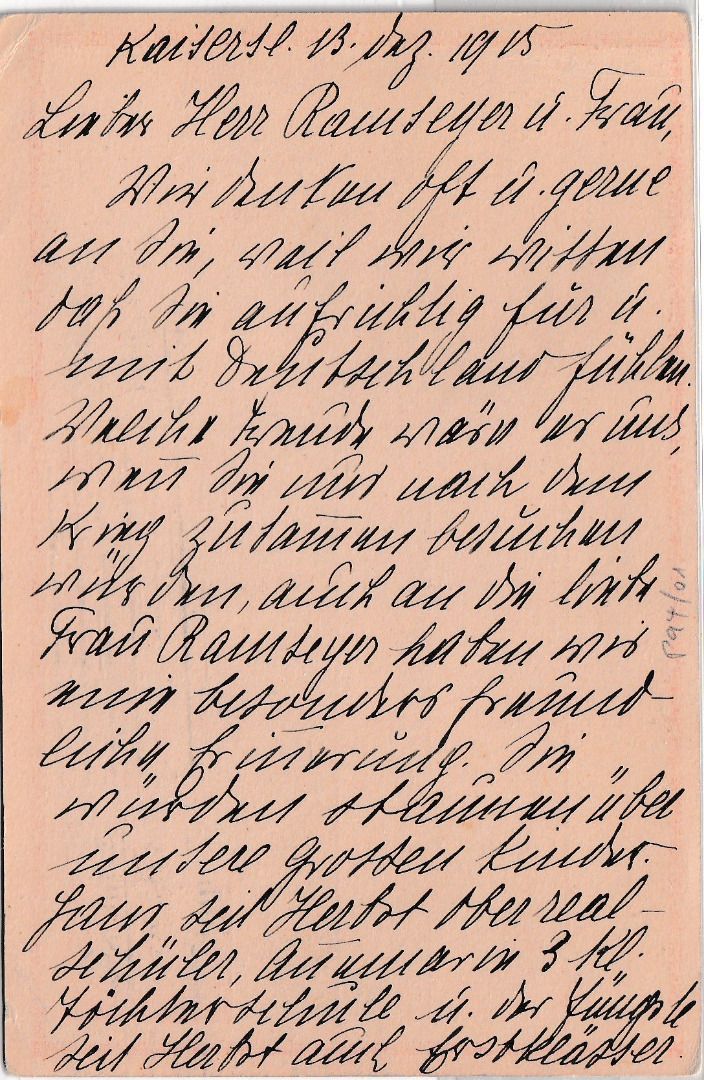 Kaisersl. 13. Dez. 1915
Lieber Herr Ramseyer u. Frau,
Wir denken oft u. gerne
an Sie, weil wir wissen
daß Sie aufrichtig für u.
mit Deutschland fühlen.
Welche Freude wäre es uns,
wen̄ Sie uns nach dem
Krieg zusam̄en besuchen
würden, auch an die liebe
Frau Ramseyer haben wir
eine besonders freund-
liche Erin̄erung. Sie
würden staunen über
unsere grossen Kinder.
Hans seit Herbst Oberreal-
schüler, An̄amarie 3 Kl.
Töchterschule u. der Jüngste
seit Herbst auch Erstklässer.